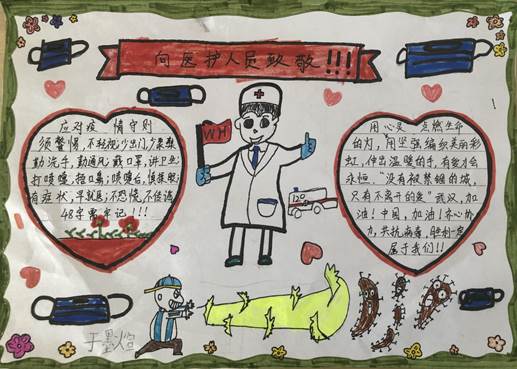 向医护人员致敬!!!
应对疫 情守则
须警惕,不轻视;少出门,少聚集;
勤洗手,勤通风;戴口罩,讲卫生;
打喷嚏,捂口鼻;喷嚏后,慎揉眼;
有症状,早就医;不恐慌,不传谣;
48字需牢记!!!
WH
120
用心灵 点燃生命
的力,用坚强编织美丽彩
虹,伸出温暖的手,有爱才会
永恒。"没有被禁锢的城,
只有不离开的爱"武汉,加
油!中国,加油!齐心协
力,共抗病毒,胜利一定
属于我们!!
于墨焰